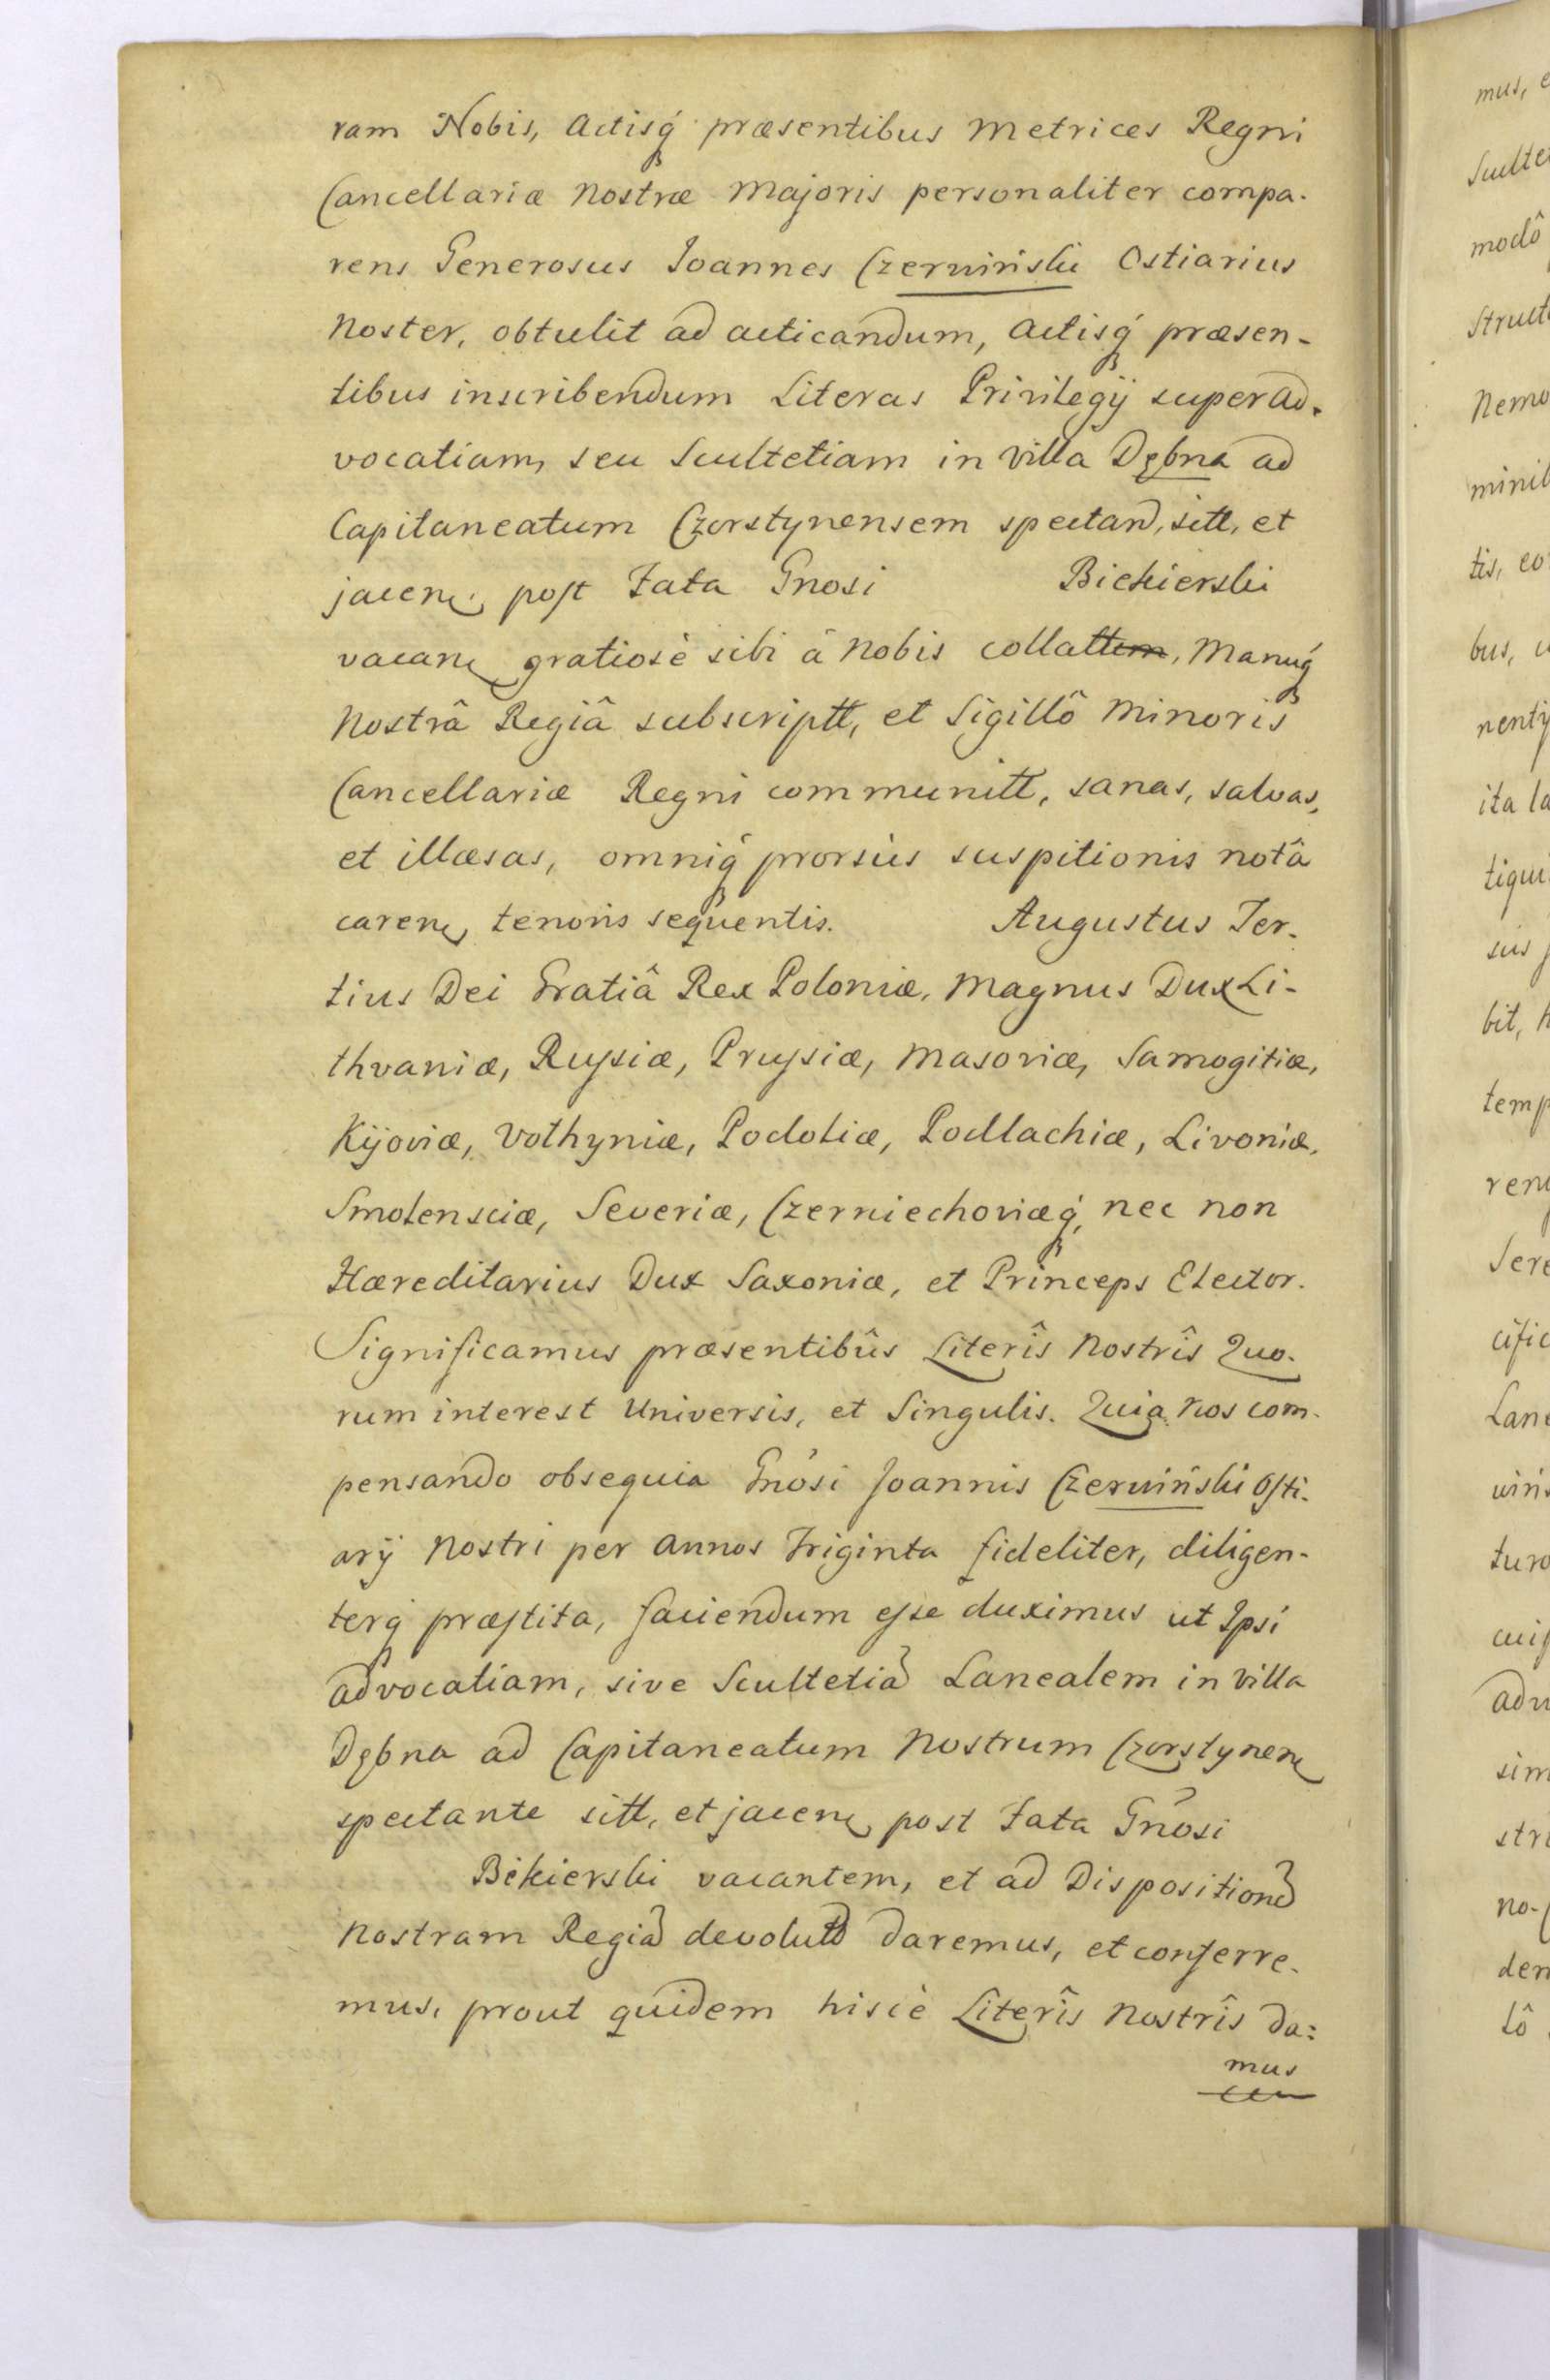 ram Nobis, Actisq́ præsentibus Metrices Regni
Cancellariæ Nostræ Majoris personaliter compa-
rens Generosus Joannes Czerwiński Ostiarius
Noster, obtulit ad acticandum, Actisq́ præsen-
tibus inscribendum Literas Privilegij super Ad-
vocatiam, seu Scultetiam in Villa Dębna ad
Capitaneatum Czorstynensem spectand, sitt, et
jacen, post Fata Gnosi Biekierski
vacan, gratiosè sibi á Nobis collattem, Manuq́
Nostrâ Regiâ subscriptt, et Sigillô Minoris
Cancellariæ Regni communitt, sanas, salvas,
et illæsas, omniq́ prorsùs suspitionis notâ
caren, tenoris sequentis. Augustus Ter-
tius Dei Gratiâ Rex Poloniæ, Magnus Dux Li-
thvaniæ, Russiæ, Prussiæ, Masoviæ, Samogitiæ,
Kijoviæ, Volhyniæ, Podoliæ, Podlachiæ, Livoniæ,
Smolensciæ, Severiæ, Czerniechoviæq́, nec non
Hæreditarius Dux Saxoniæ, et Princeps Elector.
Significamus præsentibûs Literîs Nostrîs Quo-
rum interest Universis, et Singulis. Quia Nos com-
pensando obsequia Gnosi Joannis Czerwiński Osti-
arij Nostri per Annos Triginta fideliter, diligen-
terq́ præstita, faciendum esse duximus ut Ipsi
advocatiam, sive Scultetiã Lanealem in Villa
Dębna ad Capitaneatum Nostrum Czorstynen
spectante sitt, et jacen, post Fata Gnosi
Bekierski vacantem, et ad Dispositionẽ
Nostram Regiã devolutã daremus, et conferre-
mus, prout quidem hiscè Literîs Nostrîs da:
mus
mus, 
Sculte
modô
Struct
Nemo
minib
tis, eo
bus,
nentij
ita la
tiqui
sus
bit,
temp
ren
Sere
cific
Lane
wińs
turo
cuiſ
adv
sim
stri
no-
den
lô